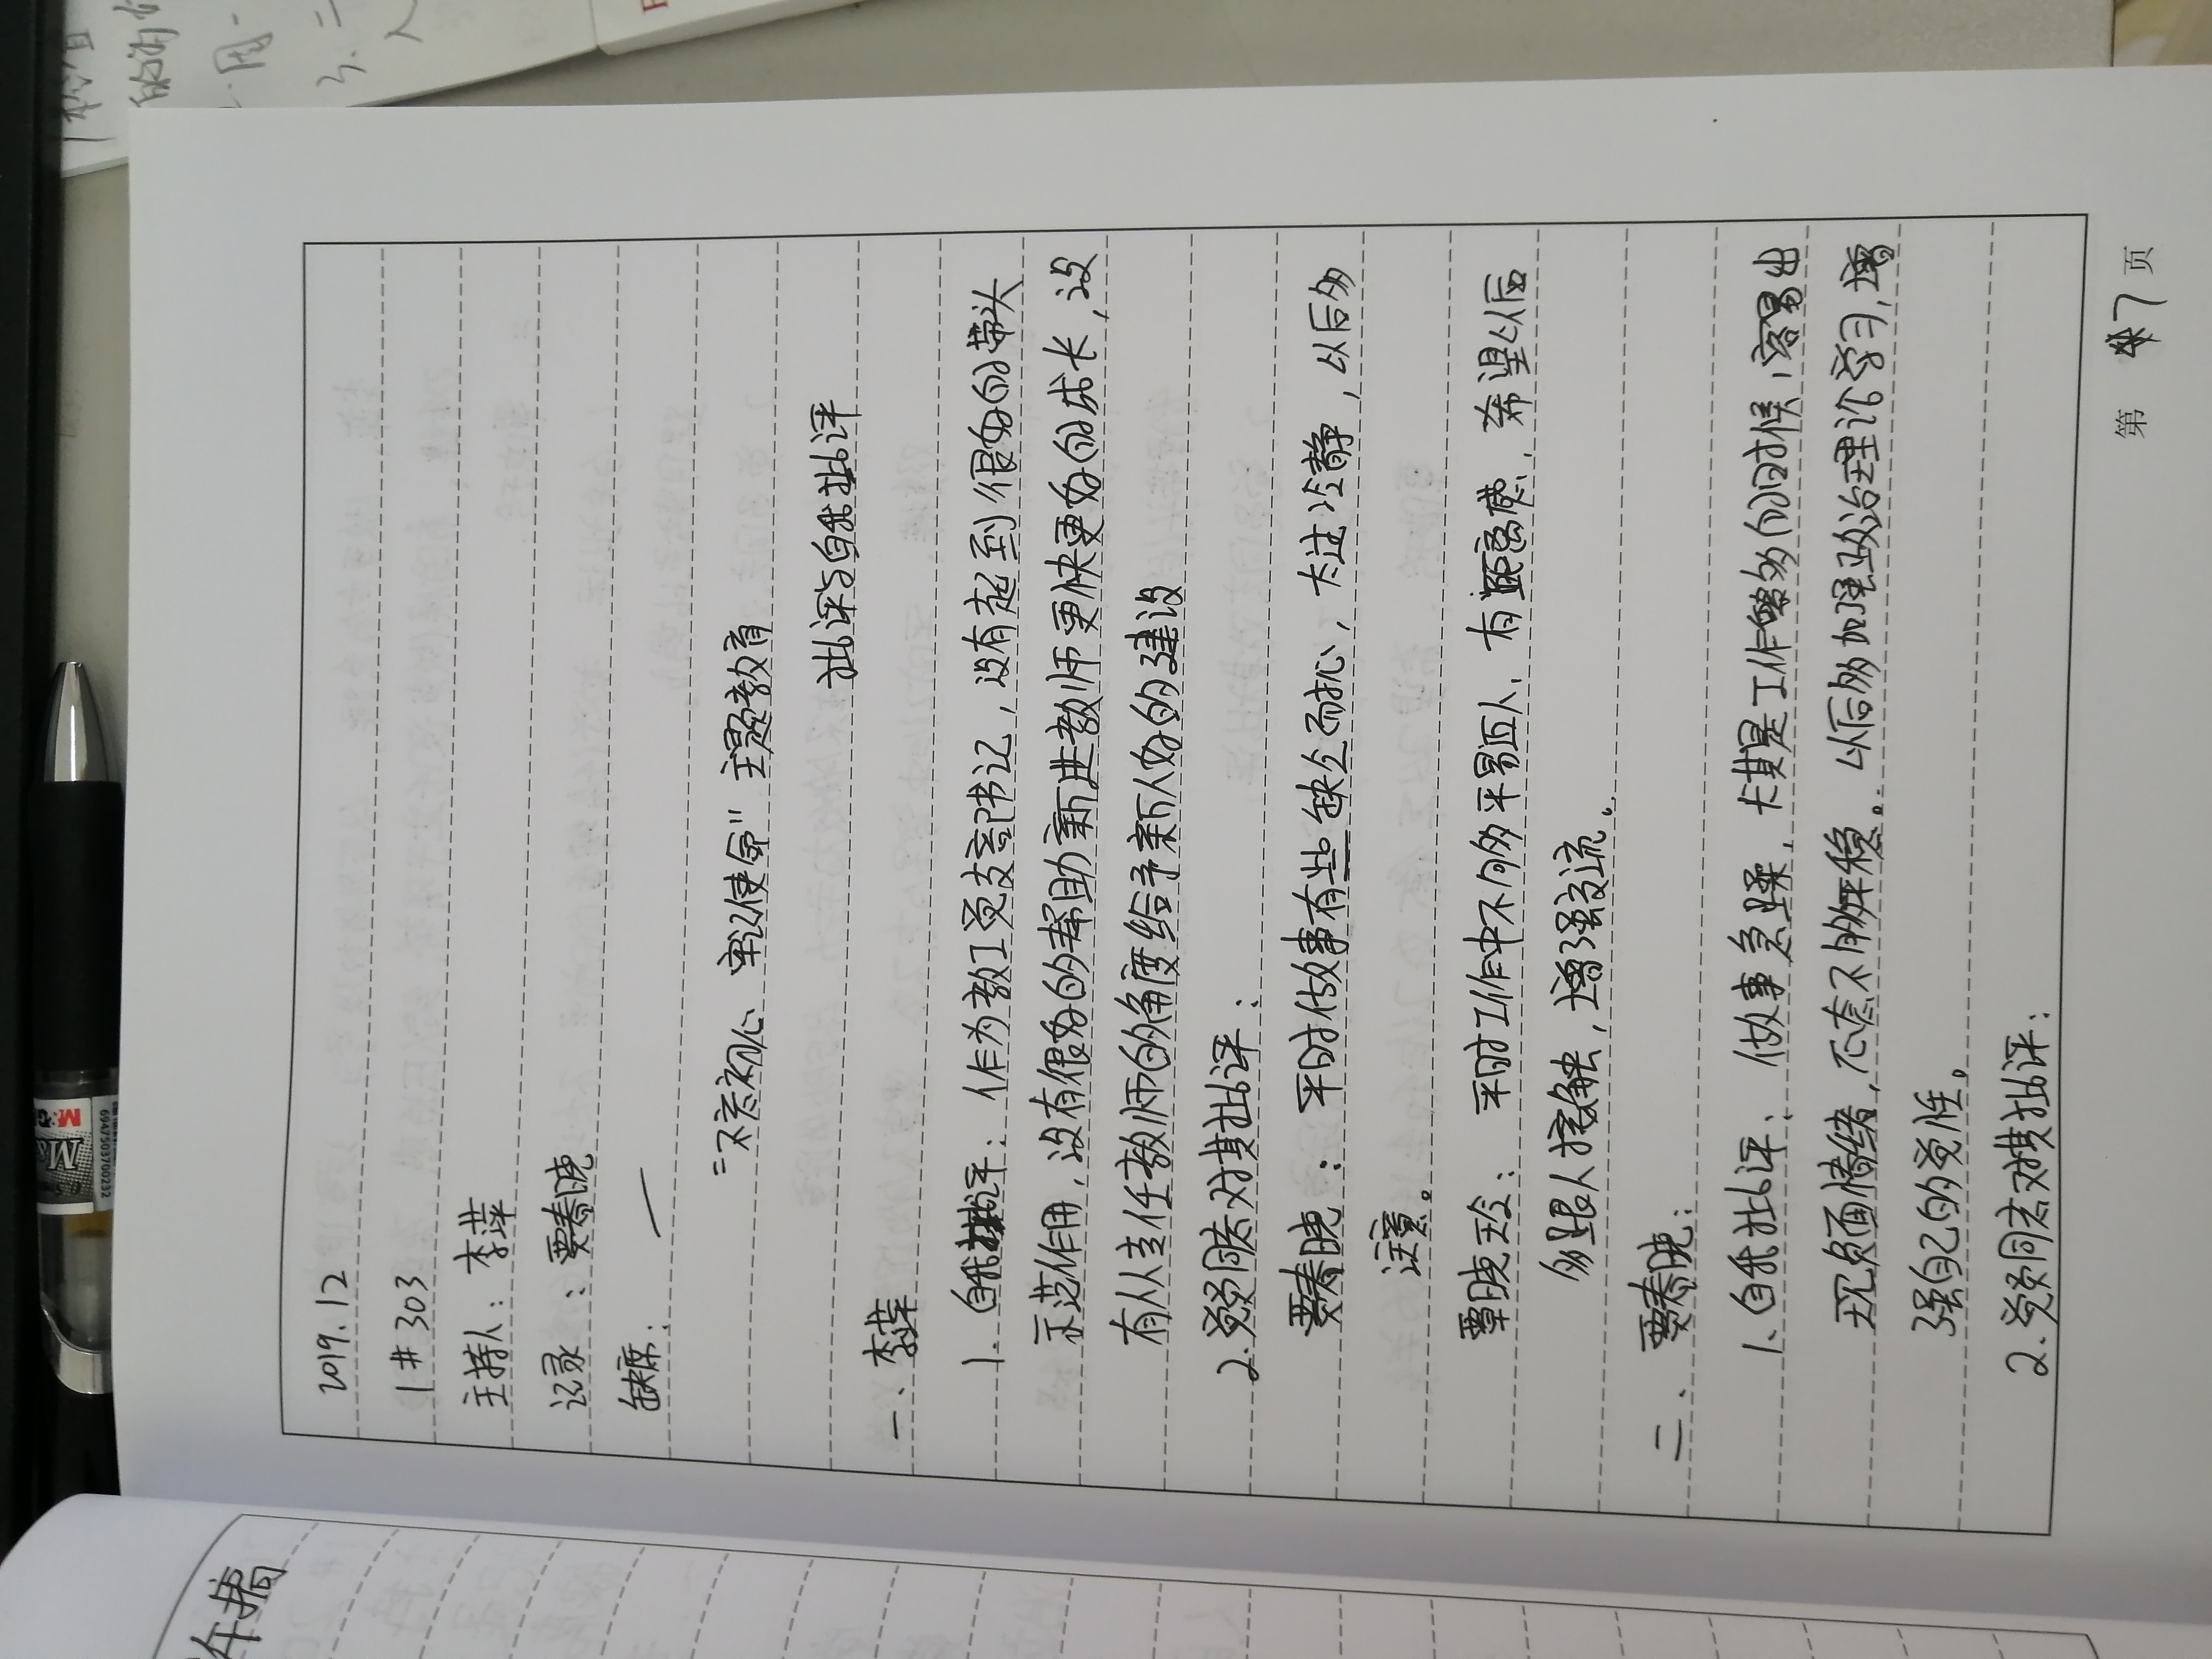 2019.12
1#303
主持人：李萍
记录：贾春晓
缺席：—
"不忘初心 牢记使命"主题教育
批评与自我批评
一、李萍
1. 自我批评：作为教工党支部书记，没有起到很好的带头
示范作用，没有很好的帮助新进教师更快更好的成长，没
有从主任教师的角度给予新人好的建设
2. 党员同志对其批评：
贾春晓：平时做事有些缺乏耐心，欠注冷静，以后多
注意。
覃晓玲：平时工作中不够平易近人，有距离感，希望以后
多跟人接触，增强交流。
二、贾春晓：
1. 自我批评：做事急躁，尤其是工作繁多的时候，容易出
现负面情绪，心态不够平稳。以后多加强政治理论学习，增
强自己的党性。
2. 党员同志对其批评：
第 7 页